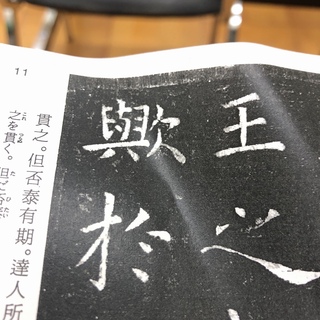 王之
歟於
11
貫之。但否泰有期。達人所
之を貫く。但